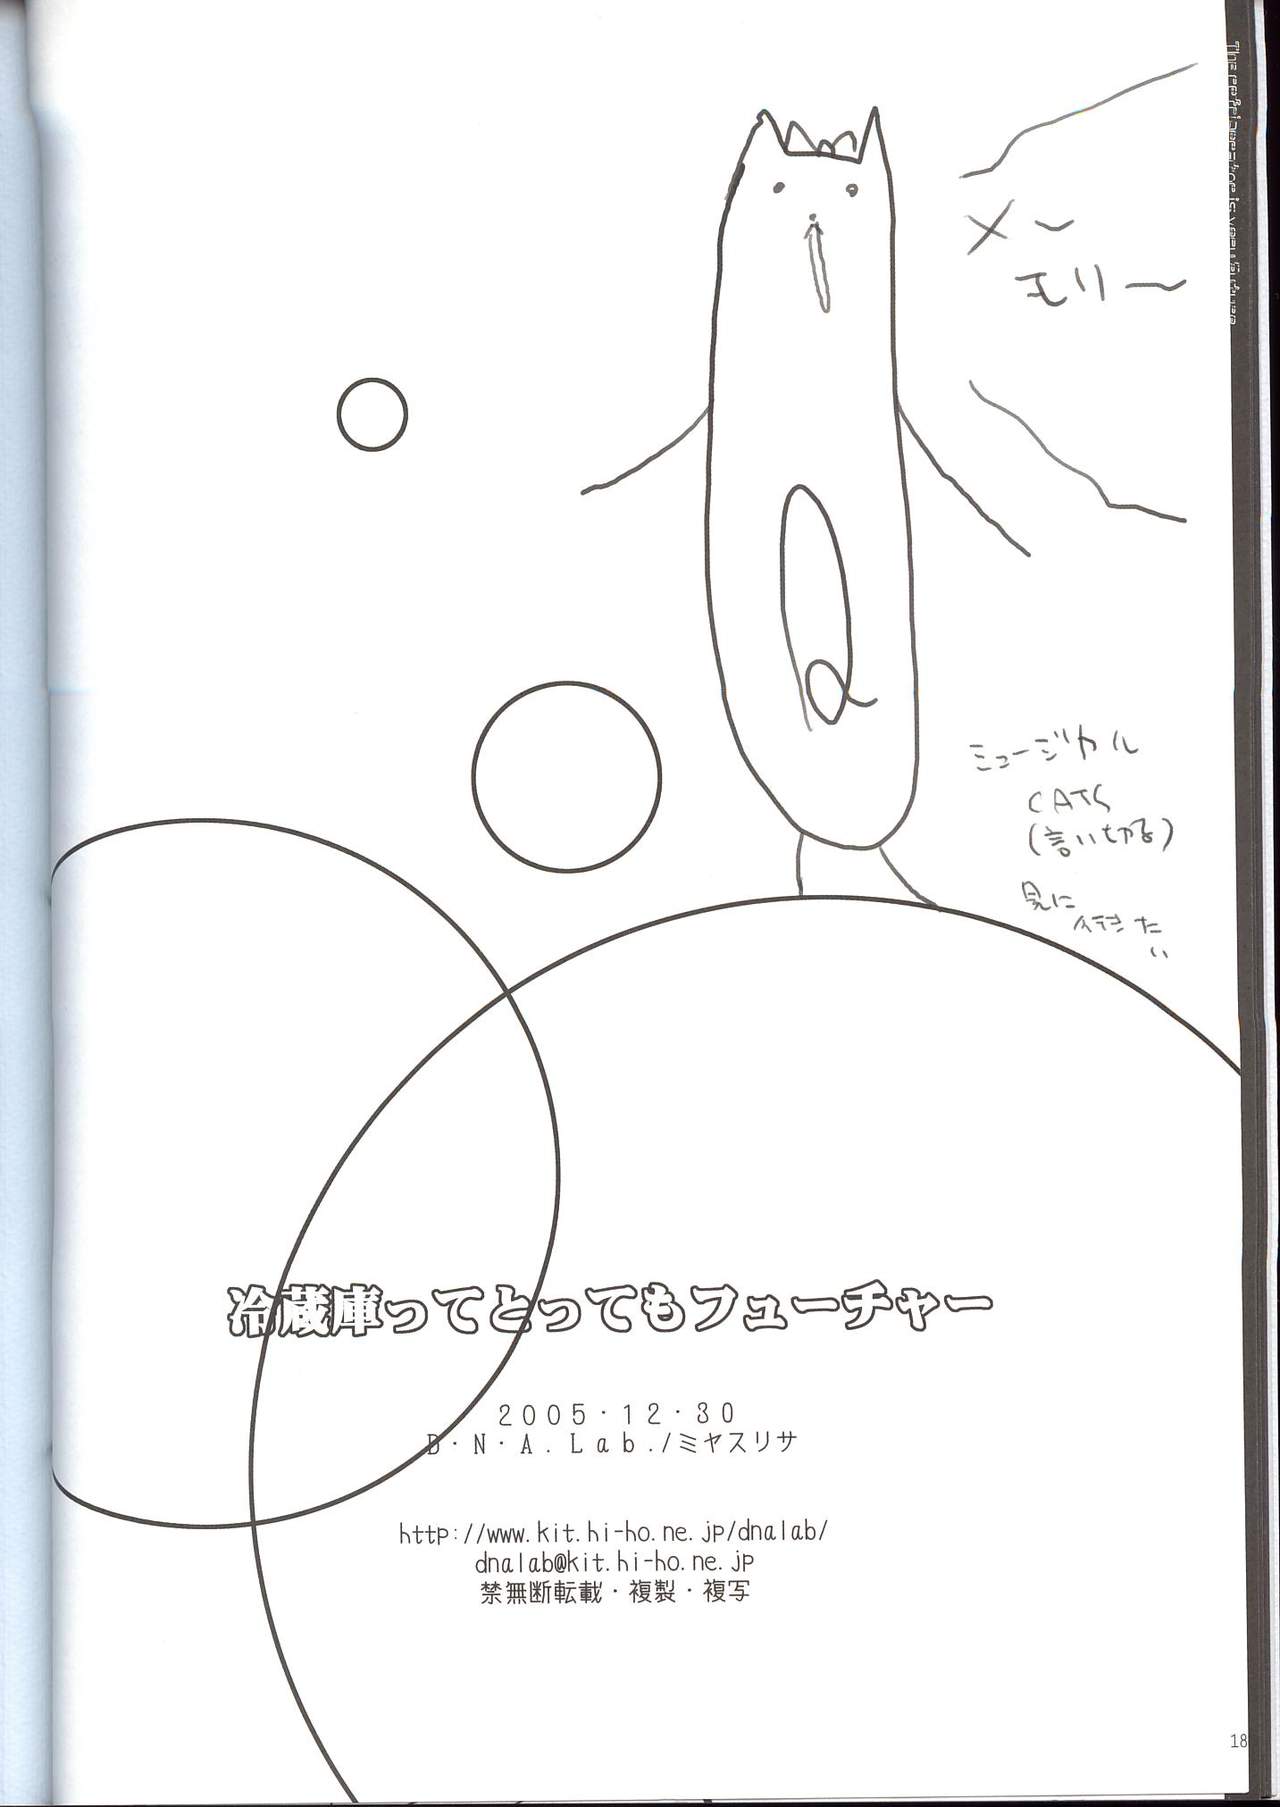 The refrigerator is very future
メ〜
モリ〜
ミュージカル
CATS
(言い切る)
見に
行きた
い
冷蔵庫ってとってもフューチャー
2005・12・30
D・N・A.Lab./ミヤスリサ
http://www.kit.hi-ho.ne.jp/dnalab/
dnalab@kit.hi-ho.ne.jp
禁無断転載・複製・複写
18